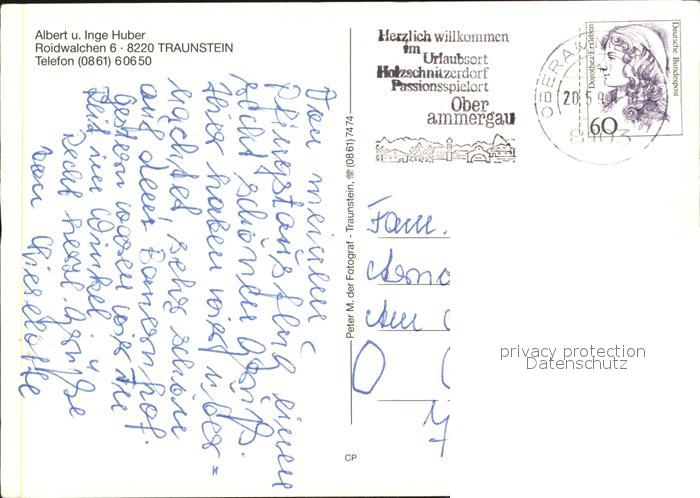 Albert u. Inge Huber
Roidwalchen 6 · 8220 TRAUNSTEIN
Telefon (0861) 60650
Von meinem
Pfingstausflug einen
recht schönen Gruß.
Hier haben wir über=
nachtet sehr schön
auf dem Bauernhof.
Gestern waren wir zu
Reit im Winkel u
Recht herzl. Grüße
von Lieselotte
Peter M. der Fotograf - Traunstein, ☏ (0861) 7474
CP
Herzlich willkommen
im
Urlaubsort
Holzschnitzerdorf
Passionsspielort
Ober
ammergau
OBERAM
20.5.9
8103
Dorothea Erxleben
Deutsche Bundespost
60
Fam.
Am
privacy protection
Datenschutz